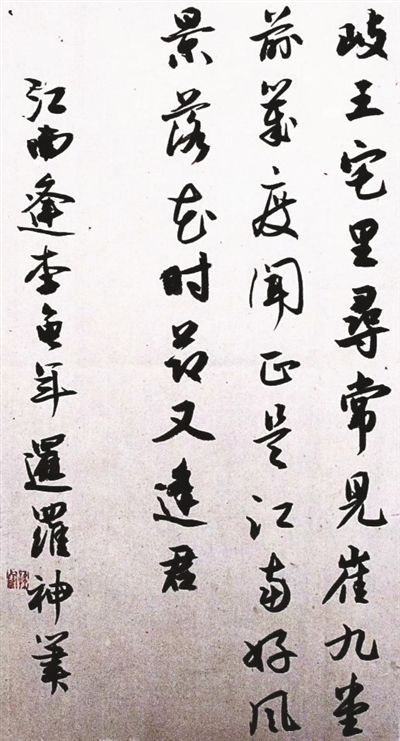 歧王宅里尋常見崔九堂
前幾度聞正是江南好風
景落花时節又逢君
江南逢李龜年 暹羅神筆